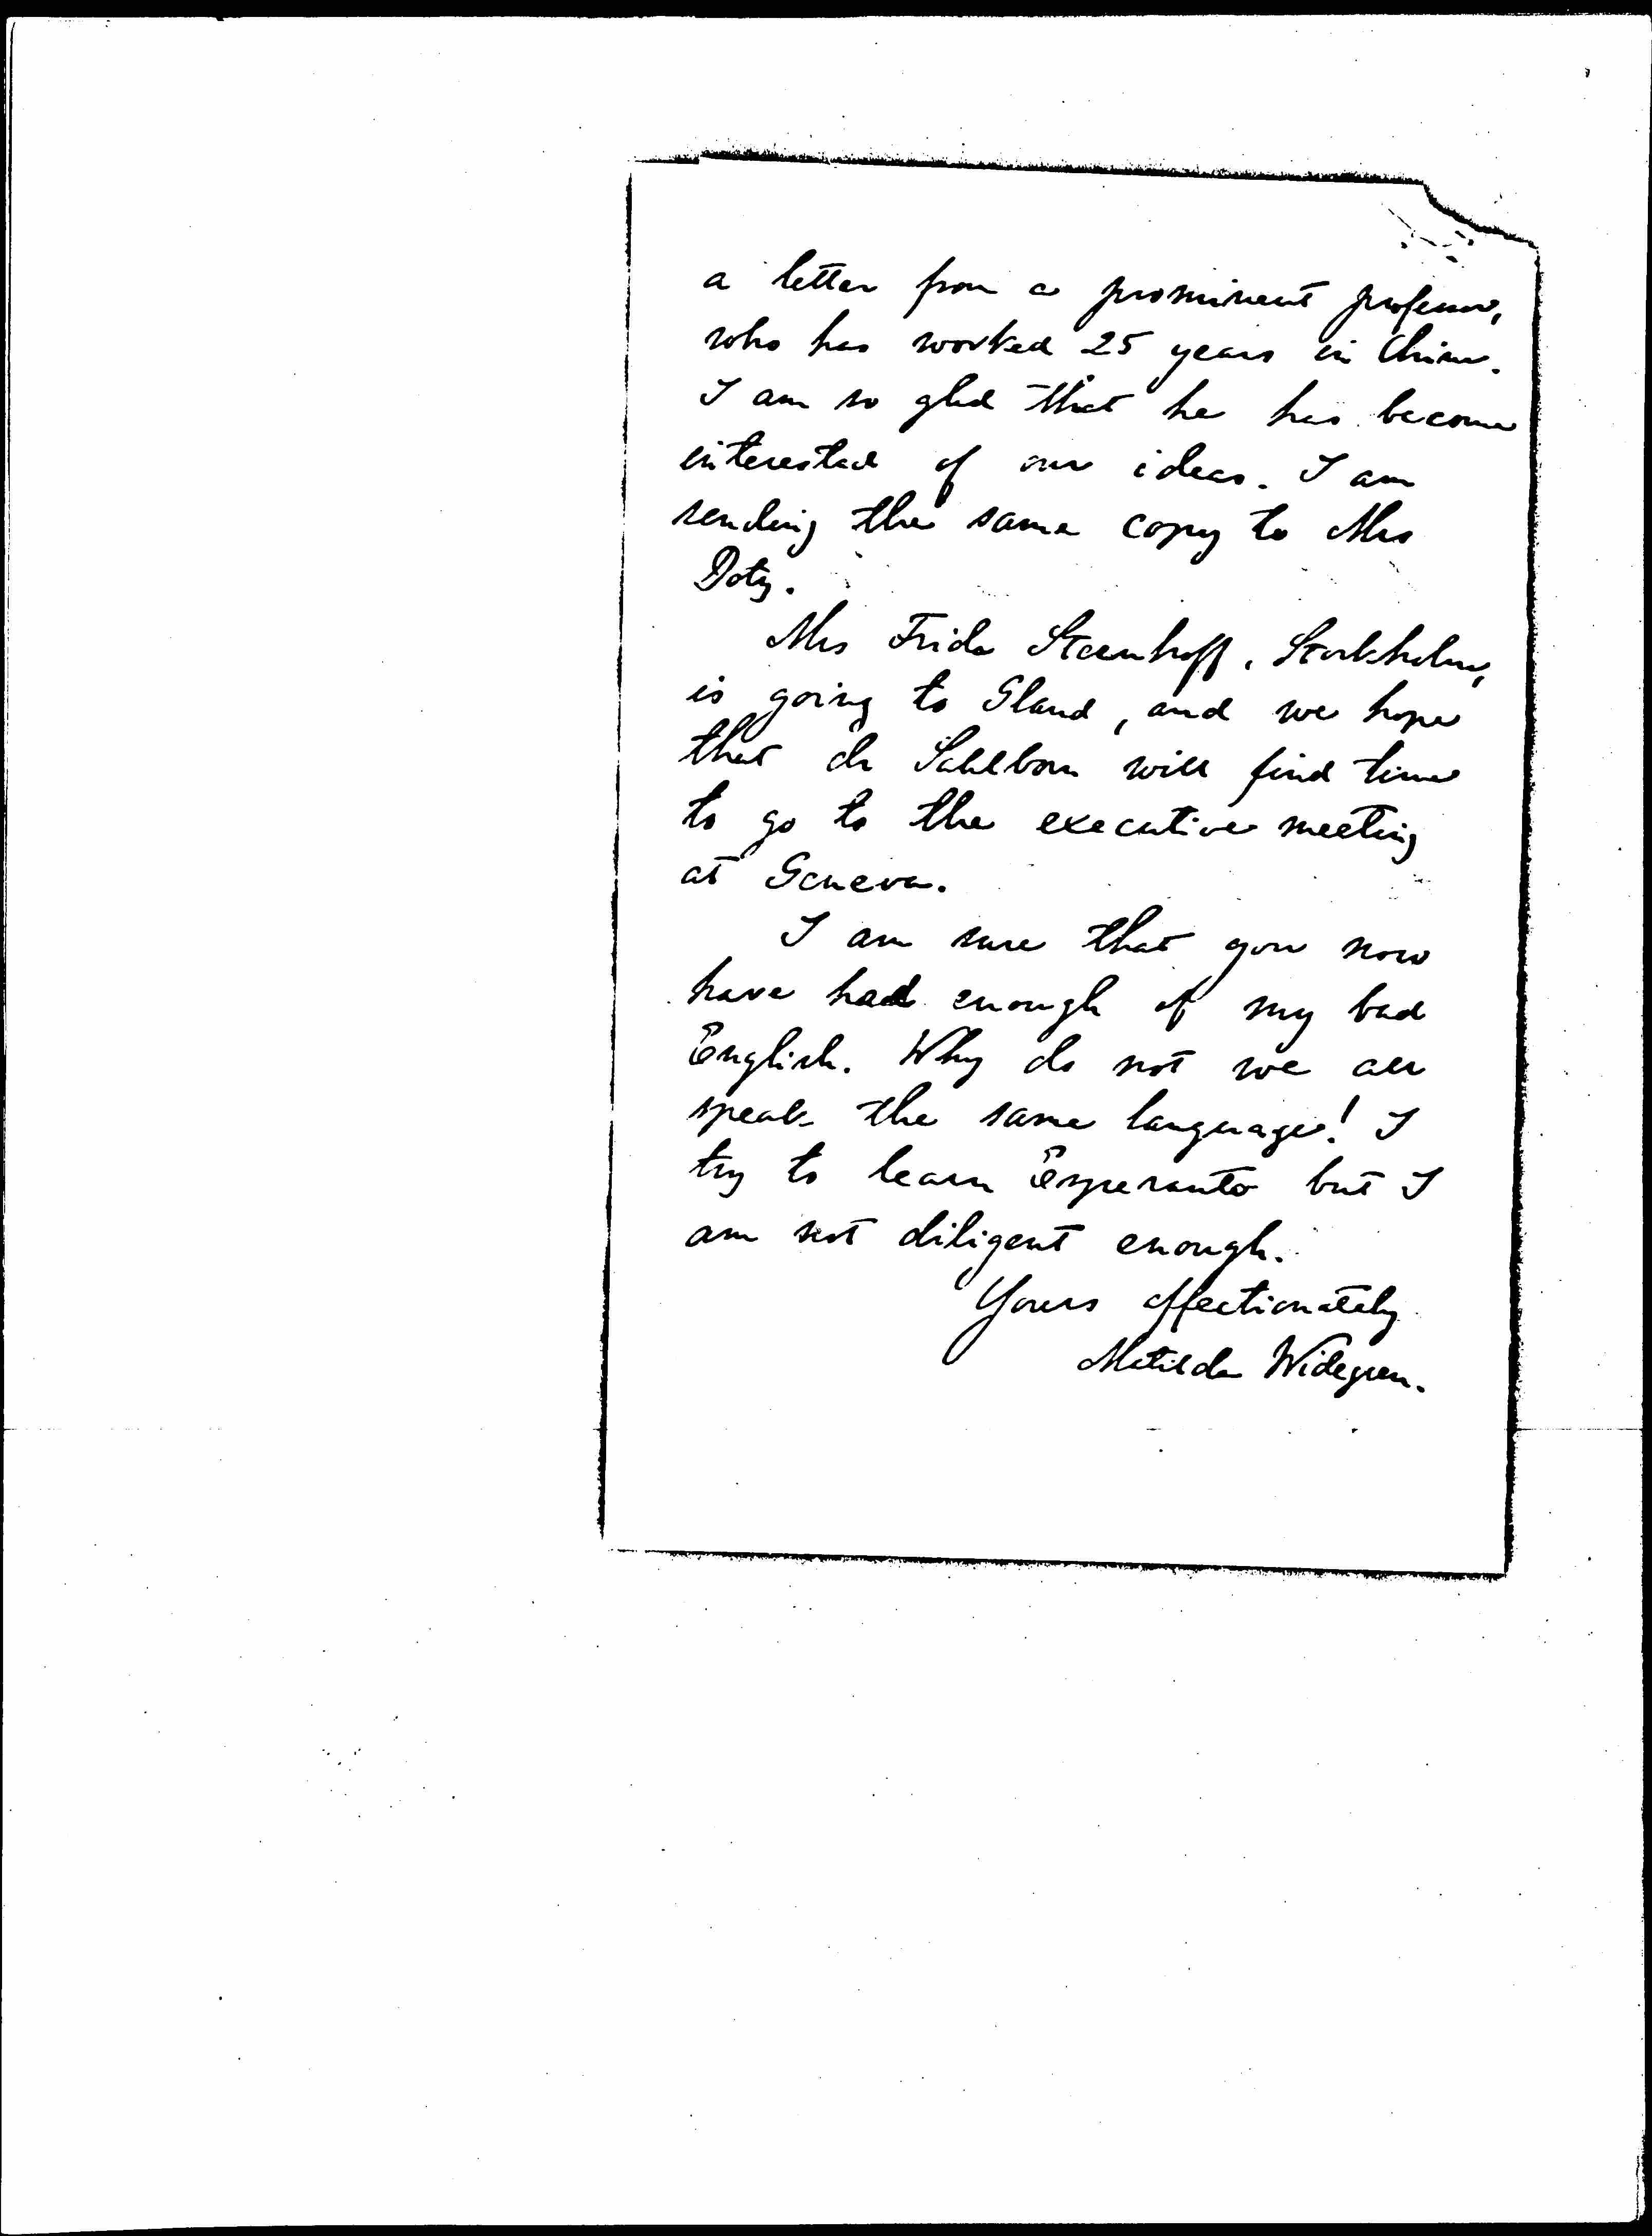 a letter from a prominent professor,
who has worked 25 years in China.
I am so glad that he has become
interested of our ideas. I am
sending the same copy to Mrs
Doty.
Mrs Frida Steenhoff, Stockholm,
is going to Gland, and we hope
that dr Sahlbom will find time
to go to the executive meeting
at Geneva.
I am sure that you now
have had enough of my bad
English. Why do not we all
speak the same language! I
try to learn Esperanto but I
am not diligent enough.
Yours affectionately
Matilda Widegren.